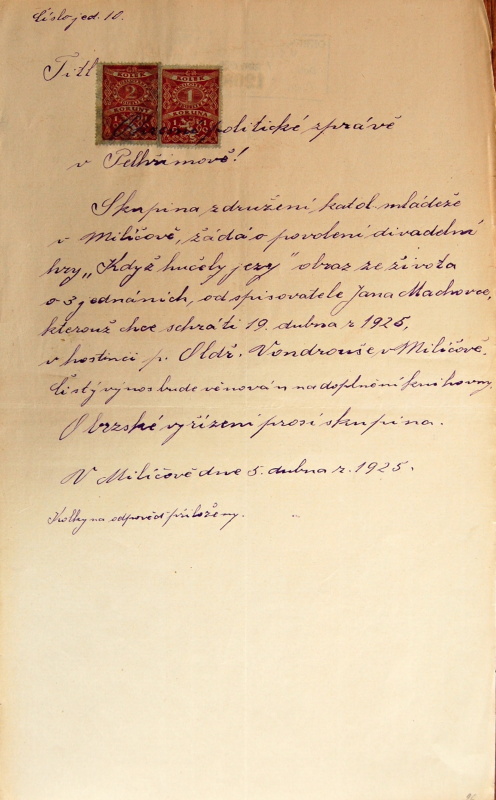 Číslo jed. 10.
Titl.
ČS
KOLEK
2
KORUNY
ČS
KOLEK
1
KORUNA
politické zprávě
v Pelhřimově!
Skupina združení katol. mládeže
v Miličově, žádá o povolení divadelní
hry „Když hučely jezy" obraz ze života
o 3 jednáních, od spisovatele Jana Machovce,
kterouž chce sehráti 19. dubna r 1925,
v hostinci p. Oldř. Vondrouše, v Miličově.
Čistý výnos bude věnován na doplnění knihovny.
O brzské vyřízení prosí skupina.
V Miličově dne 5. dubna r. 1925.
Kolky na odpověď přiloženy.